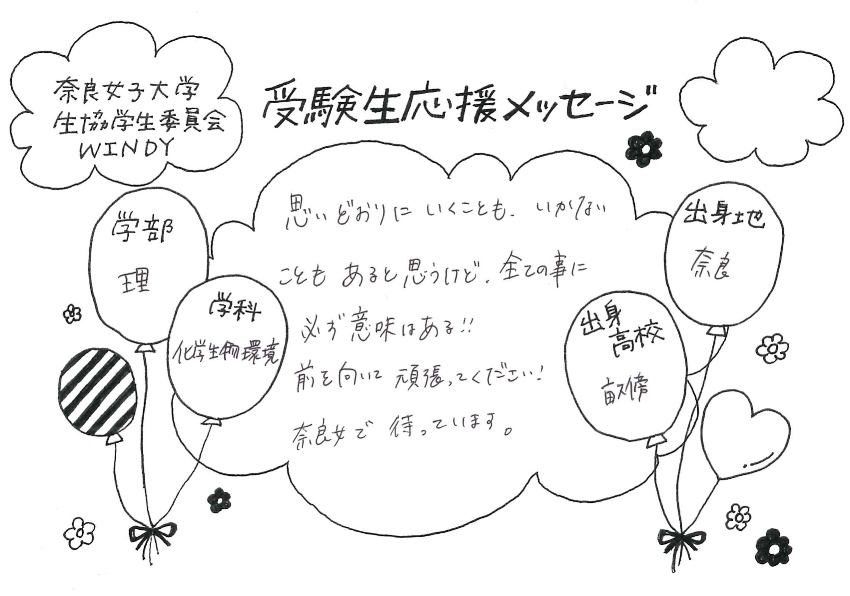 奈良女子大学
生協学生委員会
WINDY
受験生応援メッセージ
学部
理
学科
化学生物環境
思いどおりにいくことも、いかない
こともあると思うけど、全ての事に
必ず意味はある!!
前を向いて頑張ってください!
奈良女で待っています。
出身地
奈良
出身
高校
畝傍